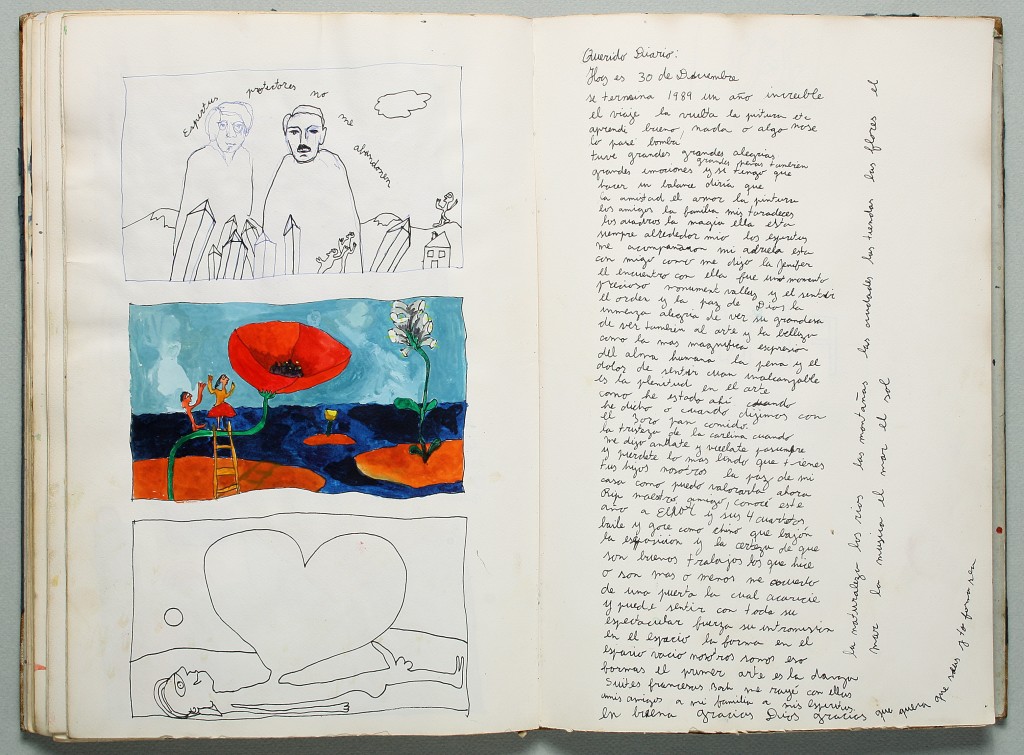 Espiritus protectores no me abandonen
Querido Diario:
Hoy es 30 de Diciembre
se termina 1989 un año increible
el viaje la vuelta la pintura etc
aprendi bueno, nada o algo nose
lo pase bomba
tuve grandes grandes alegrias
grandes penas tambien
grandes emociones y si tengo que
hacer un balance diria que
la amistad el amor la pintura
los amigos la familia mis
los cuadros la magia ella esta
siempre alrededor mio los espiritus
me acompañaron mi abuela esta
con migo como me dijo la Jenifer
el encuentro con ella fue un momento
precioso monument valley y el sentir
el orden y la paz de Dios la
inmensa alegria de ver su grandesa
de ver tambien al arte y la belleza
como la mas magnifica expresion
del alma humana la pena y el
dolor de sentir cuan inalcanzable
es la plenitud en el arte
como he estado ahi cuando
he dicho o cuando dijimos con
el 3oro pan comido.
la tristeza de la carlina cuando
me dijo andate y vuelate pasiempre
y pierdete lo mas lindo que tienes
tus hijos nosotros la paz de mi
casa como puedo valorarla ahora
Rip maestro amigo, conocí este
año a Eliot y sus 4 cuartetos
baile y goze como chino que bajón
la exposicion y la certeza de que
son buenos trabajos los que hice
o son mas o menos me acuerdo
de una puerta la cual acaricie
y pude sentir con toda su
espectacular fuerza su intromisión
en el espacio la forma en el
espacio vacio nosotros somos eso
formas el primer arte es la danza
Suites francesas Bach me rayé con ellas
a mis amigos a mi familia a mis espiritus
en buena gracias Dios gracias que quiera que seas y tu forma sea
la naturaleza los rios las montañas las ciudades las tiendas las flores el
mar la musica el mar el sol